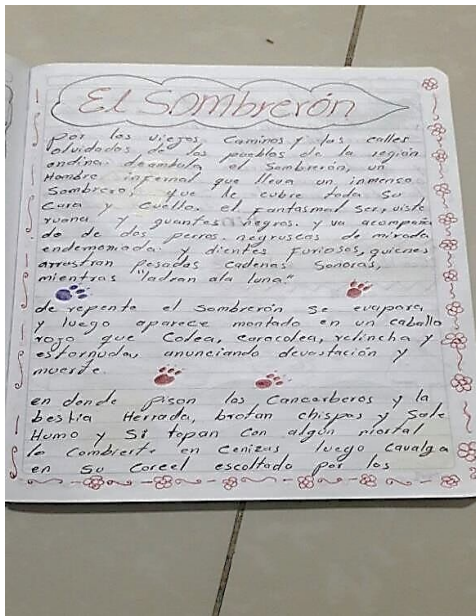 El Sombrerón
por los viejos caminos y las calles
olvidadas de los pueblos de la región
andina. deambula el Sombrerón, un
Hombre infernal que lleva un inmenso
Sombrero, que le cubre toda su
cara y cuello. el fantasmal ser, viste
ruana y guantes negros. y va acompaña
do de dos perros. negruscos de mirada
endemoniada y dientes furiosos, quienes
arrastran pesadas cadenas sonoras,
mientras "ladran ala luna"
de repente el sombrerón se evapora
y luego aparece montado en un caballo
rojo que colea, caracolea, relincha y
estornuda, anunciando devastación y
muerte.
en donde pisan los Cancerberos y la
bestia Herrada, brotan chispas y Sale
Humo y Si topan con algún mortal
lo combierte en cenizas luego cavalga
en su corcel escoltado por los